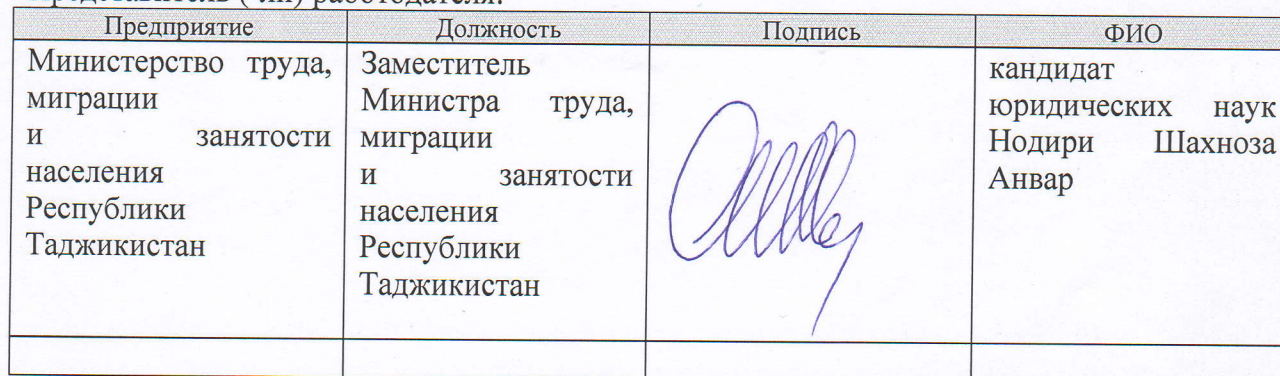 Представитель (-ли) работодателя:
Предприятие Должность Подпись ФИО
Министерство труда,
миграции
и занятости
населения
Республики
Таджикистан
Заместитель
Министра труда,
миграции
и занятости
населения
Республики
Таджикистан
кандидат
юридических наук
Нодири Шахноза
Анвар